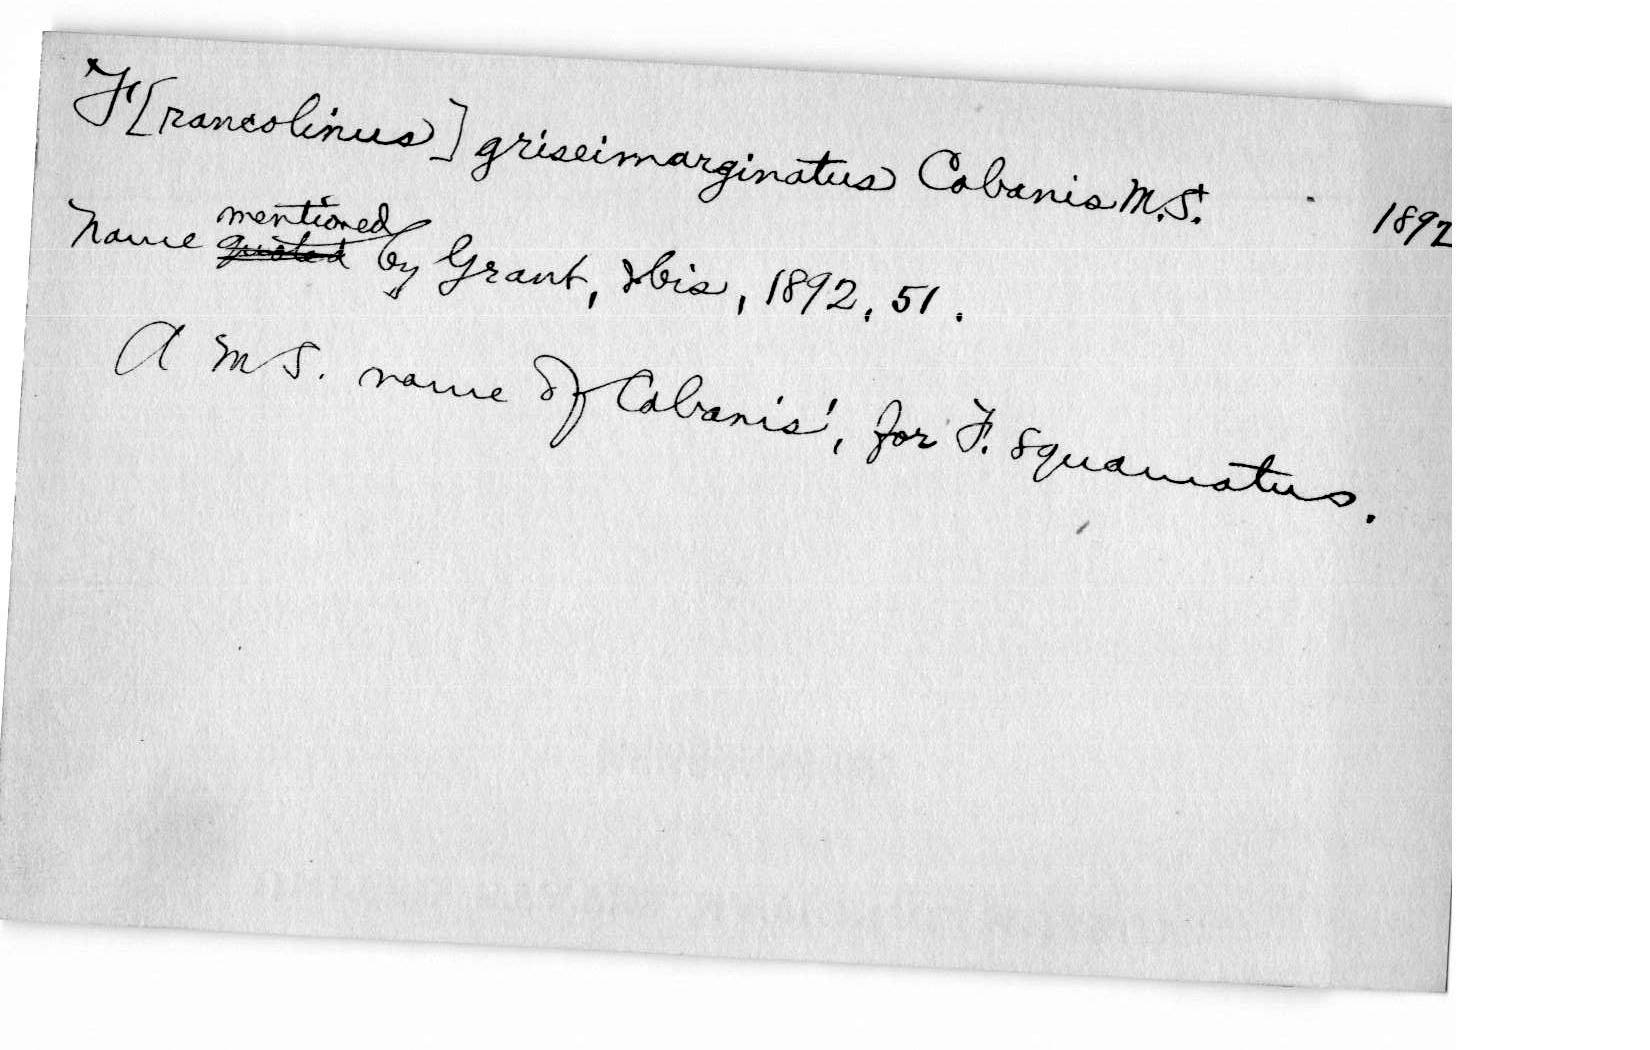 F[rancolinus] griseimarginatus Cabanis M.S. 1892
mentioned
Name quoted by Grant, Ibis, 1892, 51.
A MS. name of Cabanis', for F. squamatus.